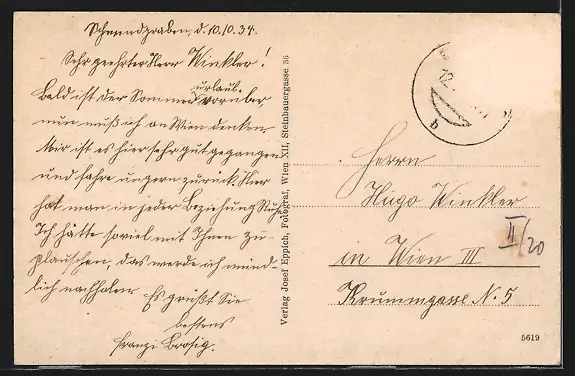 Schmundgraben, d. 10./10. 34.
Sehr geehrter Herr Winkler!
Bald ist der Sommerurlaub vorüber
nun muß ich an Wien denken
Mir ist es hier sehr gut gegangen
und fahre ungern zurück. Hier
hat man in jeder Beziehung Ruhe.
Ich hätte soviel mit Ihnen zu
plauschen, das werde ich münd-
lich nachholen.
Es grüßt Sie
bestens
Franzi Brosig.
Verlag Josef Eppich, Fotograf, Wien XII, Steinbauergasse 36
Herrn
Hugo Winkler
in Wien III
Krummgasse N. 5
II/20
5619